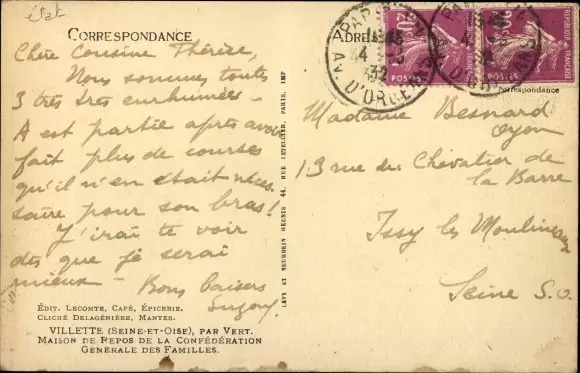 état
CORRESPONDANCE
Chère Cousine Thérèse,
Nous sommes toutes
3 très très enrhumées -
A est partie après avoir
fait plus de courses
qu'il n'en était néces.
saire pour son bras!
J'irai te voir
dès que je serai
mieux - Bons baisers
Suzon,
ÉDIT. LECOMTE, CAFÉ, ÉPICERIE.
CLICHÉ DELAGÉNIÈRE, MANTES.
VILLETTE (SEINE-ET-OISE), PAR VERT.
MAISON DE REPOS DE LA CONFÉDÉRATION
GENERALE DES FAMILLES.
LEVY ET NEURDEIN RÉUNIS 44, RUE LETELLIER, PARIS. IMP
ADRE
correspondance
PARIS
AV. D'ORLEANS
32
20c
POSTES
REPUBLIQUE FRANÇAISE
20c
POSTES
Madame Besnard
13 rue du Chevalier de
la Barre
Issy les Moulineaux
Seine S.O.